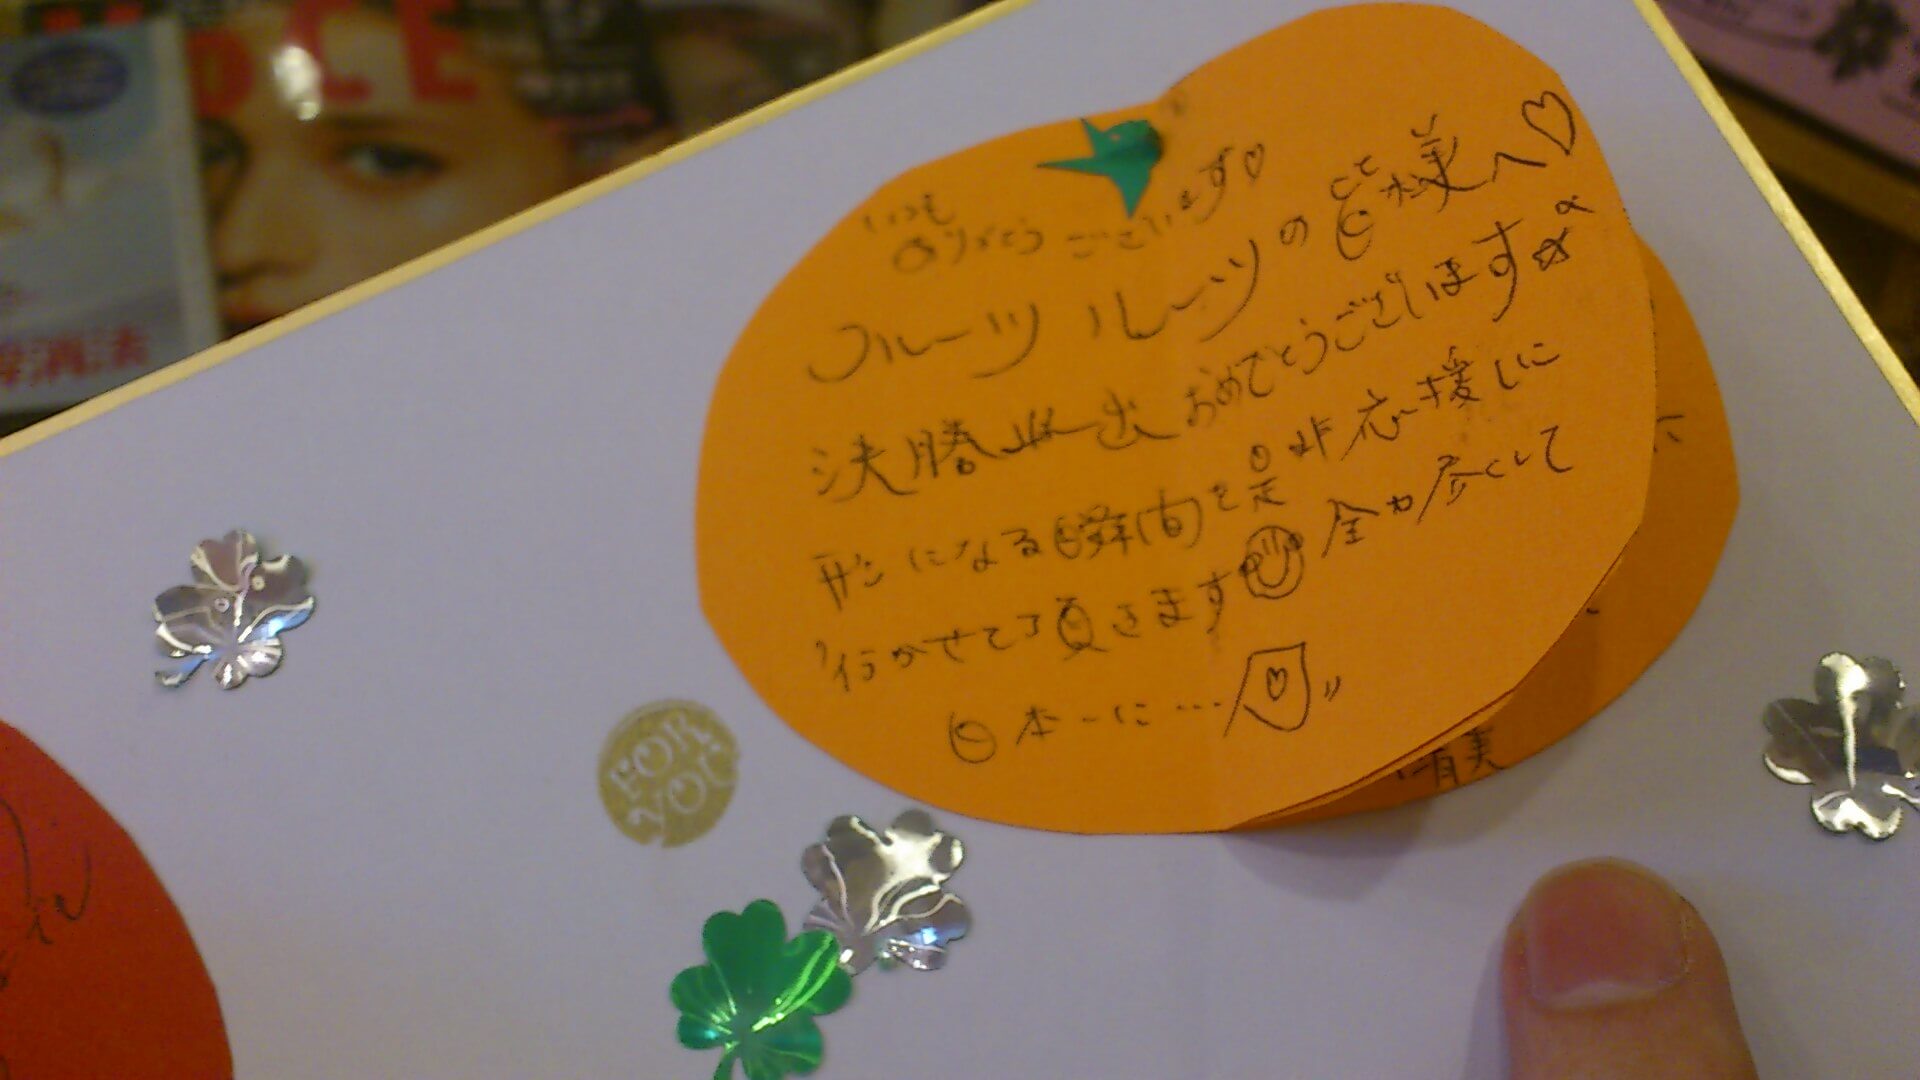 いつも
ありがとうございます♡
フルーツルーツの皆様へ♡
決勝進出おめでとうございます☆
形になる瞬間を是非応援しに
行かせて頂きます 全力尽くして
日本一に…
有美
FOR
YOU
解消法